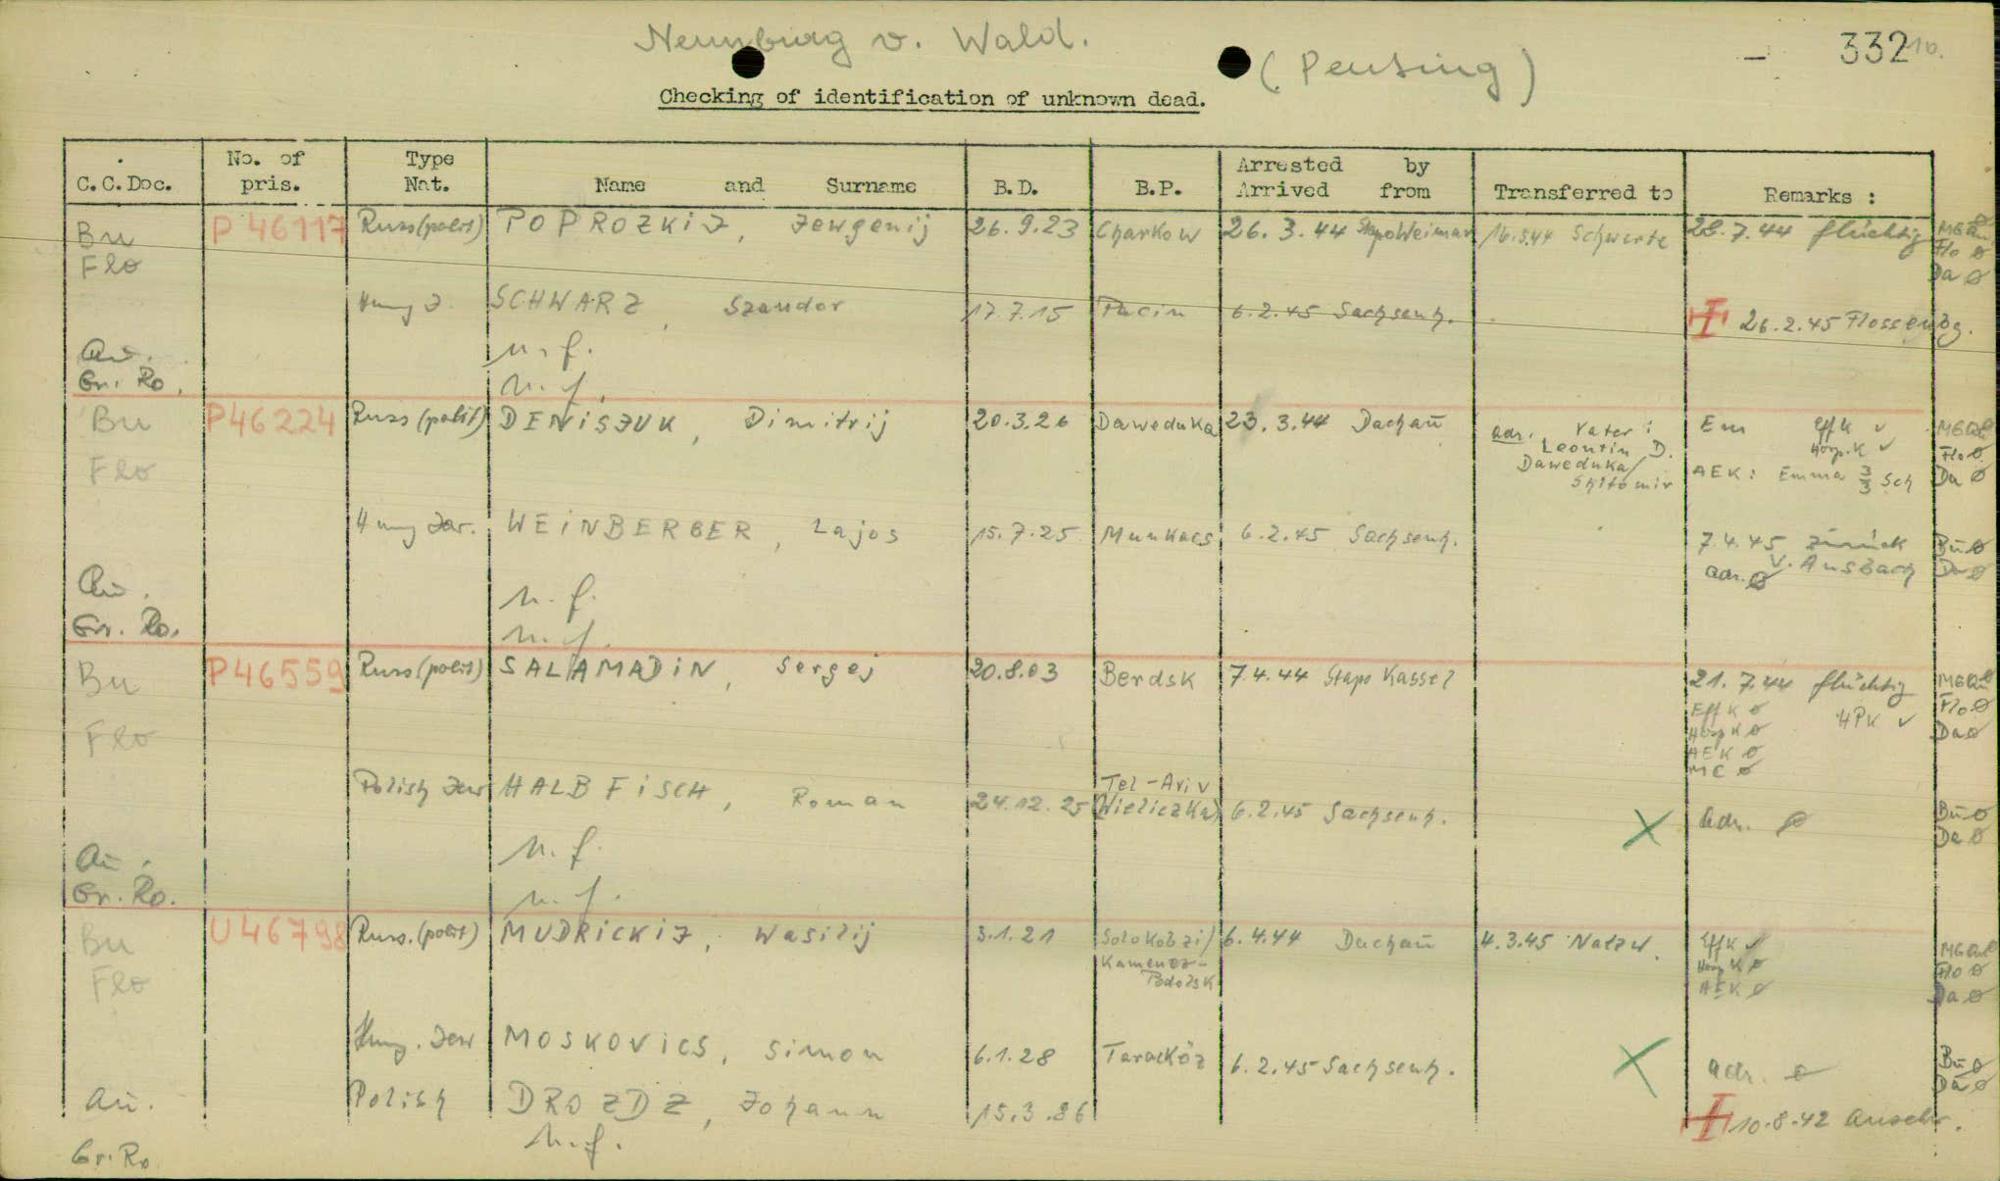 Neunburg v. Wald.
(Penting)
332
Checking of identification of unknown dead.
C.C.Doc.
No. of pris.
Type Nat.
Name and Surname
B.D.
B.P.
Arrested by
Arrived from
Transferred to
Remarks :
Bu P 46117 Russ(polit) POPROZKIJ, Jewgenij 26.9.23 Charkow 26.3.44 StapoWeimar 16.5.44 Schwerte 28.7.44 flüchtig
Flo Flo ø
Da ø
Hung J. SCHWARZ, Szandor 17.7.15 Pacin 6.2.45 Sachsenh. 26.2.45 Flossenbg.
Au. n.f.
Gr. Ro. n.f.
Bu P46224 Russ(polit) DENiSJUK, Dimitrij 20.3.26 Daweduka 23.3.44 Dachau
adr. Vater:
Leontin D.
Daweduka/
Shitomir
Em Effk ✓
AEK: Emma 3/3 Sch
Flo Flo ø
Da ø
Hung Jew. WEiNBERBER, Lajos 15.7.25 Munkacs 6.2.45 Sachsenh. 7.4.45 zurück Bu ø
v. Ansbach Da ø
adr. ø
Au. n.f.
Gr. Ro. n.f.
Bu P46559 Russ(polit) SALAMADiN, Sergej 20.8.03 Berdsk 7.4.44 Stapo Kassel 21.7.44 flüchtig
Flo Eff K ø HPK ✓ Flo ø
Da ø
AEK ø
MC ø
Polish Jew HALBFiSCH, Roman 24.12.25 Tel-Ariv
(Wieliczka) 6.2.45 Sachsenh. X adr. ø Bu ø
Da ø
Au. n.f.
Gr. Ro. n.f.
Bu U46798 Russ.(polit) MUDRiCKiJ, Wasilij 3.1.21 Solokobzi/ 6.4.44 Dachau 4.3.45 Natzw. Effk ✓
Flo Kamenez-
Podolsk
AEK ø
Flo ø
Da ø
Hung. Jew MOSKOViCS, Simon 6.1.28 Taracköz 6.2.45 Sachsenh. X adr. ø Bu ø
Da ø
Au. Polish DROZDZ, Johann 15.3.86 10.8.42 Auschw.
n.f.
Gr. Ro